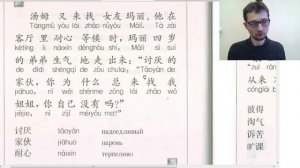 汤姆 又来找 女友玛丽。他在
Tāngmǔ yòu lái zhǎo nǚyǒu Mǎlì. Tā zài
客厅 里 耐心 等候 时，玛丽 四岁
kètīng lǐ nàixīn děnghòu shí, Mǎlì sì suì
的 弟弟 生气 地 走出来，“讨厌的
de dìdi shēngqì de zǒu chūlái, "Tǎoyàn de
家伙，你 为 什么 总 来 找 我
jiāhuo, nǐ wèi shénme zǒng lái zhǎo wǒ
姐姐，你自己没有吗？”
jiějie, nǐ zìjǐ méiyǒu ma?"
讨厌 tǎoyàn надоедливый
家伙 jiāhuo парень
耐心 nàixīn терпеливо
从来
cónglái
彼得
淘气
诉苦
旷课